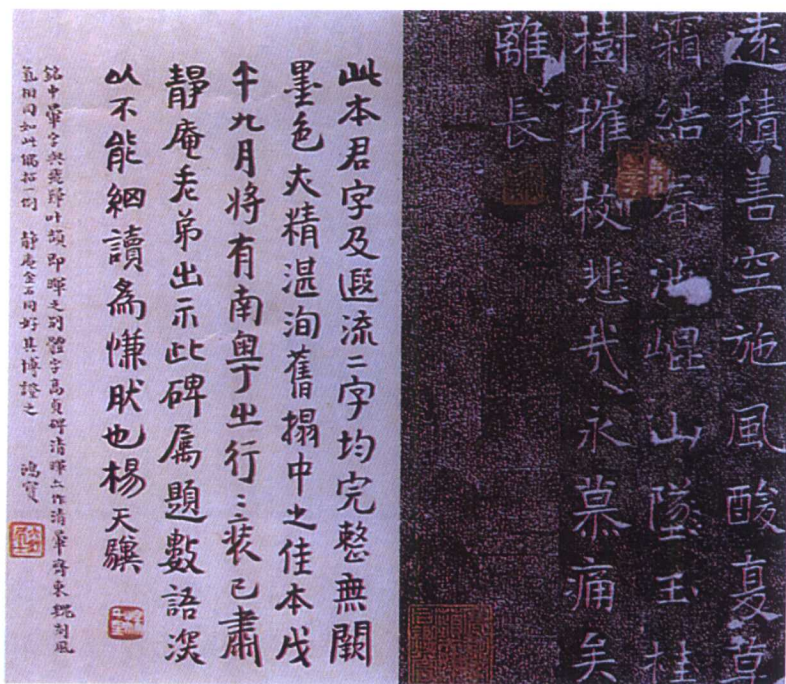 遠積善空施風酸夏草
霜結春池崐山墜玉桂
樹摧枝悲哉永慕痛矣
離長
此本君字及遐流二字均完整無闕
墨色夫精湛洵舊搨中之佳本戊
午九月將有南粵之行行裝已肅
靜庵老弟出示此碑屬題數語深
以不能細讀為慊肰也楊天驥
銘中畢字與幾歸叶韻即暉之別體字高貞碑清暉亦作清畢齊東魏刻風
氣相同如此偏拓一例 靜庵金石同好其博證之 鴻寶